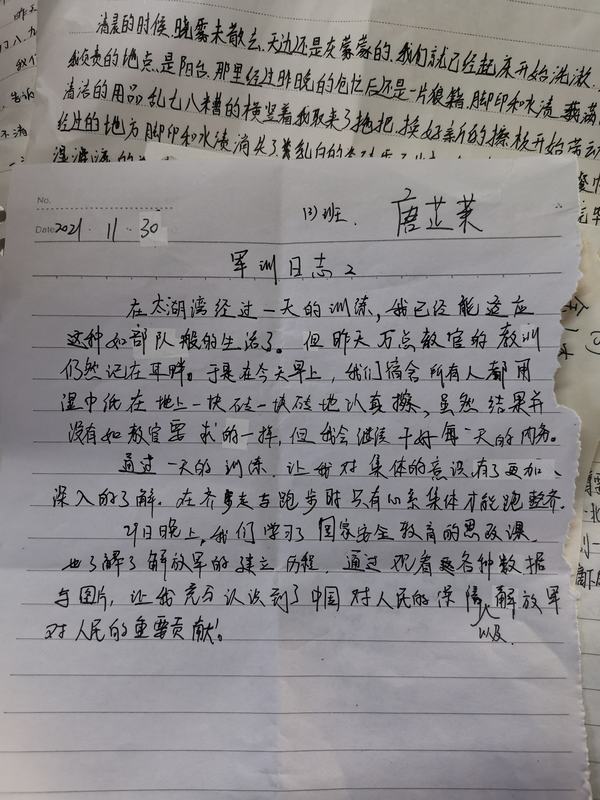 清晨的时候,晓雾未散去,天边还是灰蒙蒙的,我们就已经起床开始洗漱.
我负责的地点,是阳台,那里经过昨晚的包忆后还是一片狼籍,脚印和水渍,载满
清洁的用品,乱七八糟的横竖着,我取来了拖把,换好新的擦板开始劳动
经过的地方脚印和水渍消失了,
No.
Date 2021 . 11 . 30
(3)班. 唐芷茉
军训日志2
在太湖湾经过一天的训练,我已经能适应
这种如部队般的生活了。但昨天万点教官的教训
仍然记在耳畔。于是在今天早上,我们宿舍所有人都用
湿巾纸在地上一块砖一块砖地认真擦,虽然结果并
没有如教官要求的一样,但我会继续干好每一天的内务。
通过一天的训练.让我对集体的意识有了更加、
深入的了解.在齐步走与跑步时只有心系集体才能跑整齐.
29日晚上,我们学习了国家安全教育的思政课.
也了解了解放军的建立历程.通过观看各种数据
与图片,让我充分认识到了中国对人民的保障以及解放军
对人民的重要贡献!